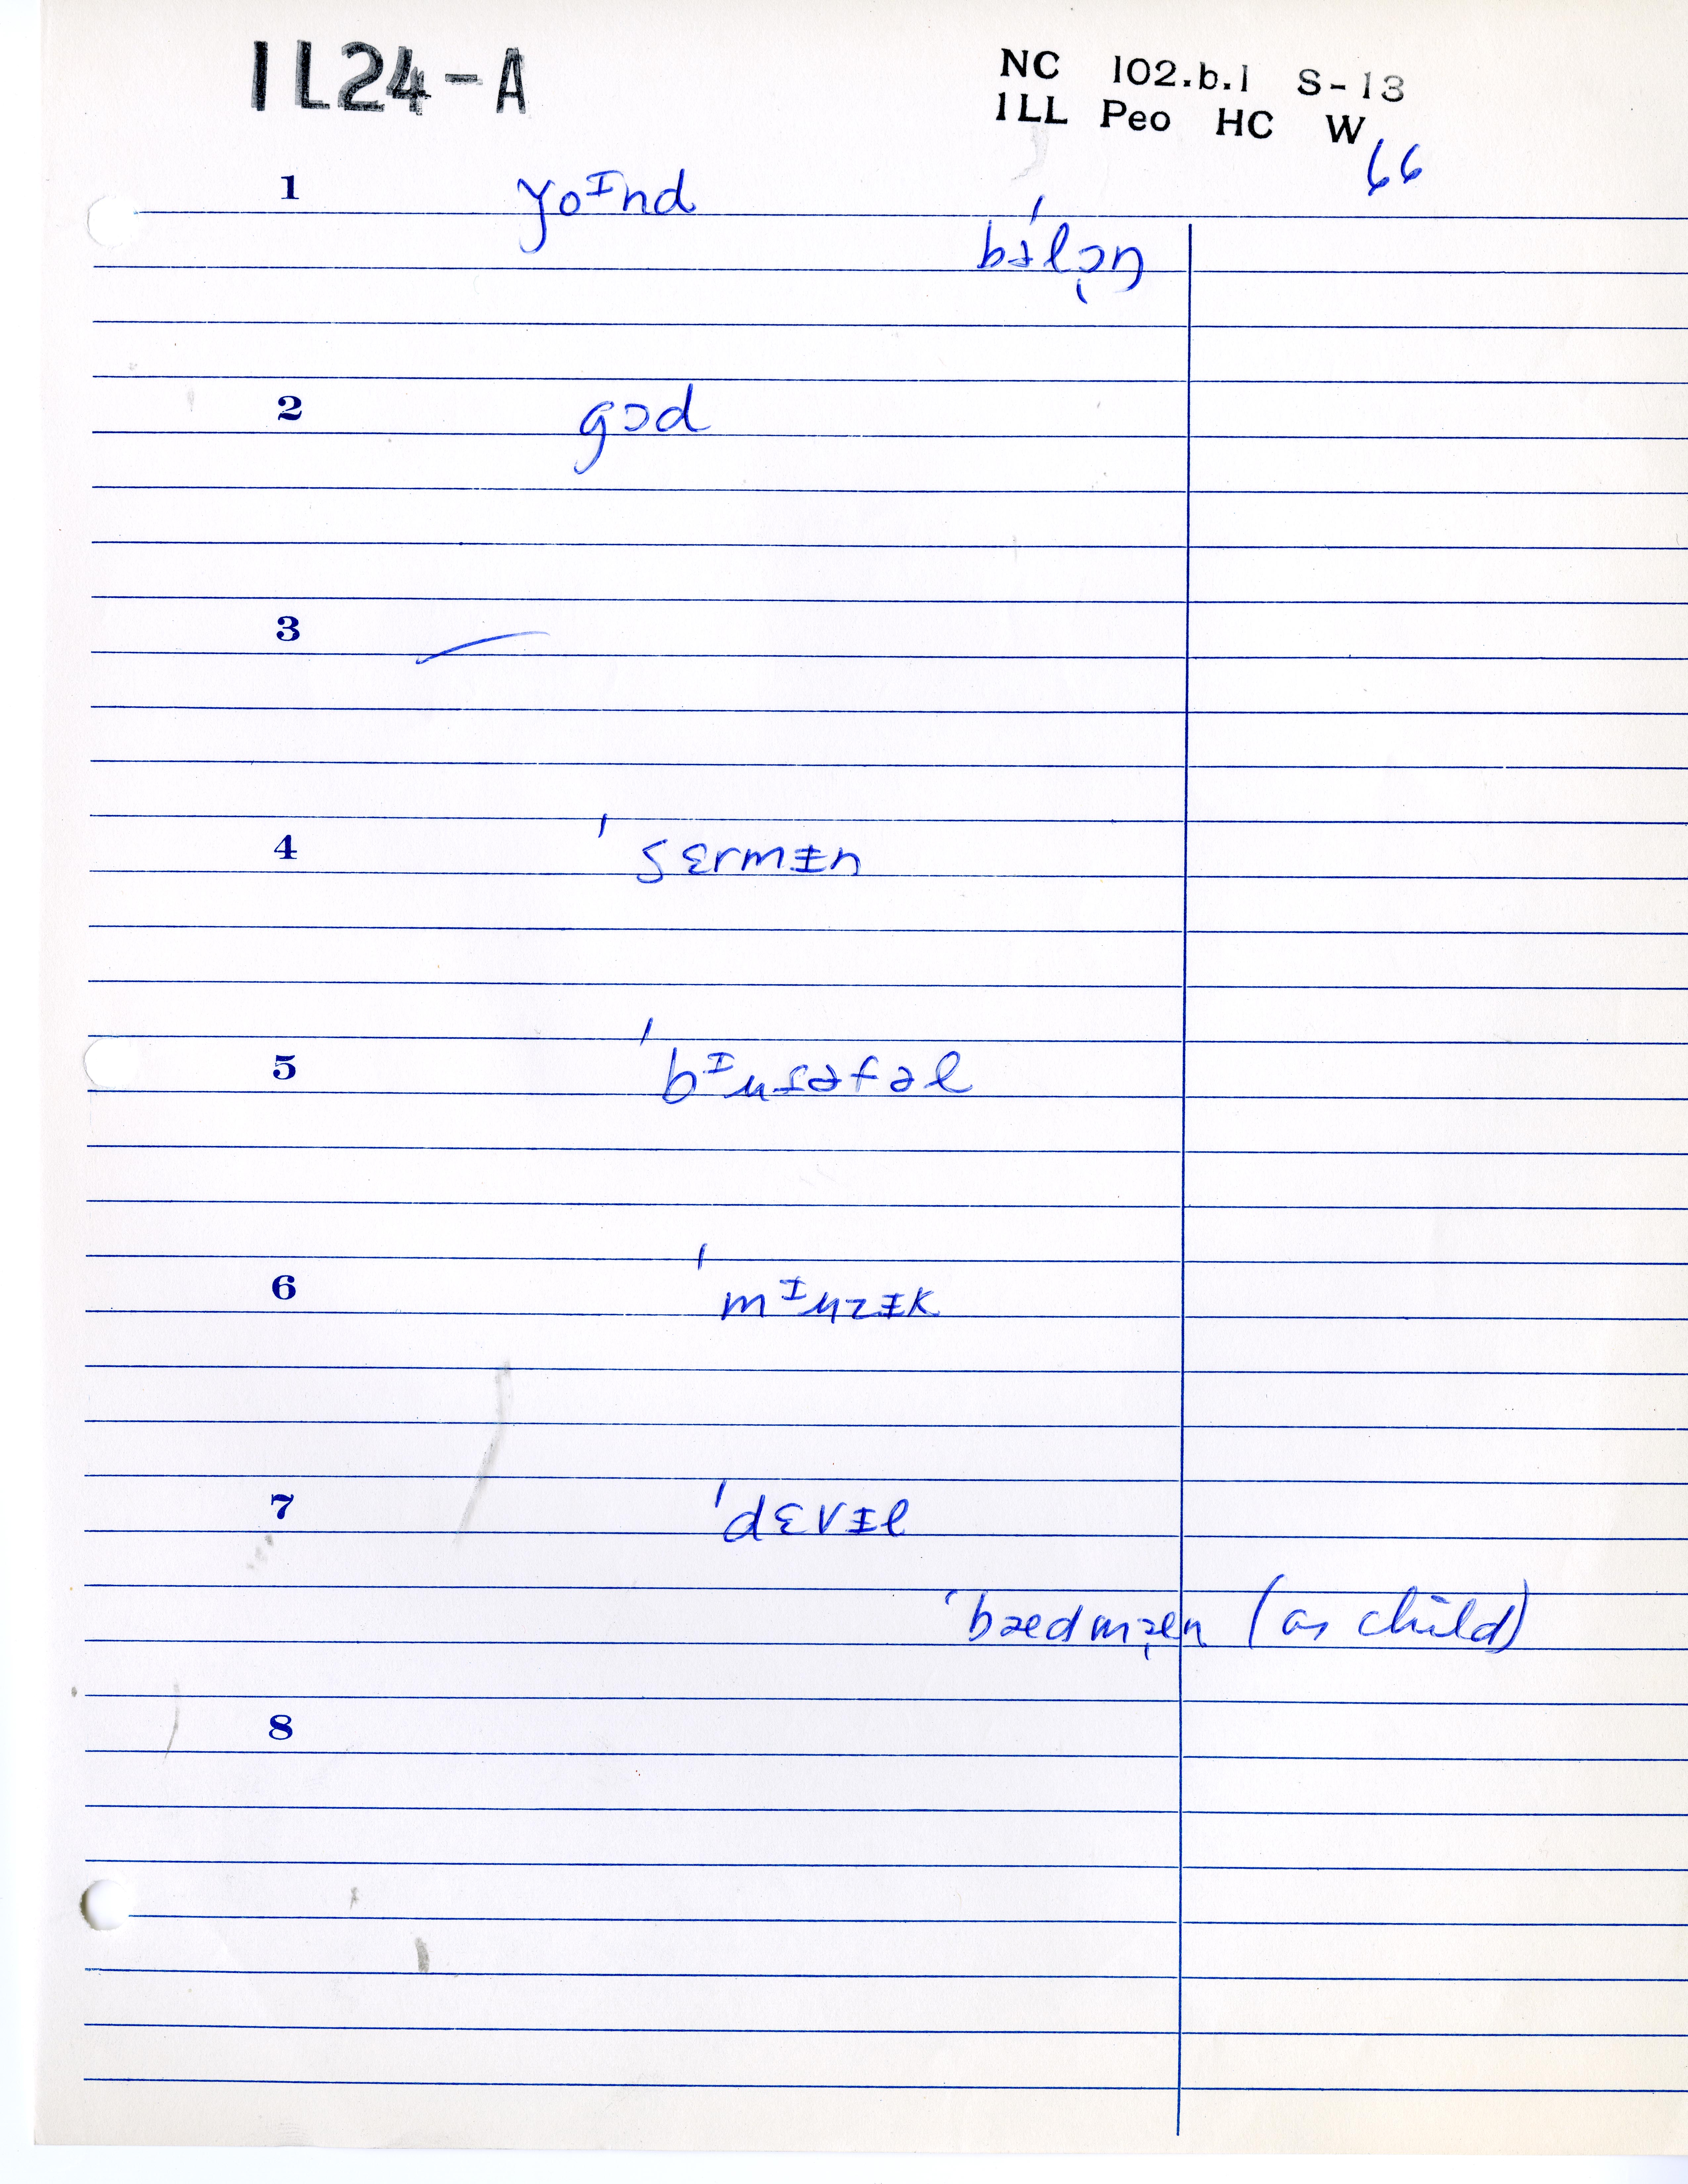 IL24-A
NC 102.b.1 S-13
ILL Peo HC W
66
1 ɣoᴵnd
ˈbɨlɔ̩ŋ
2 gɔd
3
4 ˈsɛrmɨn
5 ˈbᴵuɾəfəl
6 ˈmᴵʉzɨk
7 ˈdɛvɨl
ˈbædmæ̩n (as child)
8